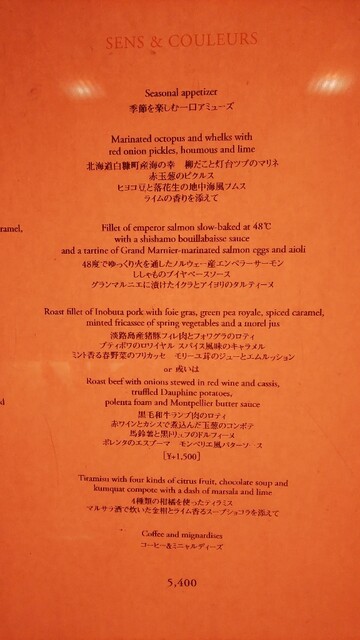 SENS & COULEURS
Seasonal appetizer
季節を楽しむ一口アミューズ
Marinated octopus and whelks with
red onion pickles, houmous and lime
北海道白糠町産海の幸 柳だこと灯台ツブのマリネ
赤玉葱のピクルス
ヒヨコ豆と落花生の地中海風フムス
ライムの香りを添えて
ramel,
Fillet of emperor salmon slow-baked at 48℃
with a shishamo bouillabaisse sauce
and a tartine of Grand Marnier-marinated salmon eggs and aioli
48度でゆっくり火を通したノルウェー産エンペラーサーモン
ししゃものブイヤベースソース
グランマルニエに漬けたイクラとアイヨリのタルティーヌ
Roast fillet of Inobuta pork with foie gras, green pea royale, spiced caramel,
minted fricassee of spring vegetables and a morel jus
淡路島産猪豚フィレ肉とフォワグラのロティ
プティポワのロワイヤル スパイス風味のキャラメル
ミント香る春野菜のフリカッセ モリーユ茸のジューとエムルッション
or 或いは
Roast beef with onions stewed in red wine and cassis,
d
truffled Dauphine potatoes,
polenta foam and Montpellier butter sauce
黒毛和牛ランプ肉のロティ
赤ワインとカシスで煮込んだ玉葱のコンポテ
馬鈴薯と黒トリュフのドルフィーヌ
ポレンタのエスプーマ モンペリエ風バターソース
[¥+1,500]
Tiramisu with four kinds of citrus fruit, chocolate soup and
kumquat compote with a dash of marsala and lime
4種類の柑橘を使ったティラミス
マルサラ酒で炊いた金柑とライム香るスープショコラを添えて
Coffee and mignardises
コーヒー&ミニャルディーズ
5,400